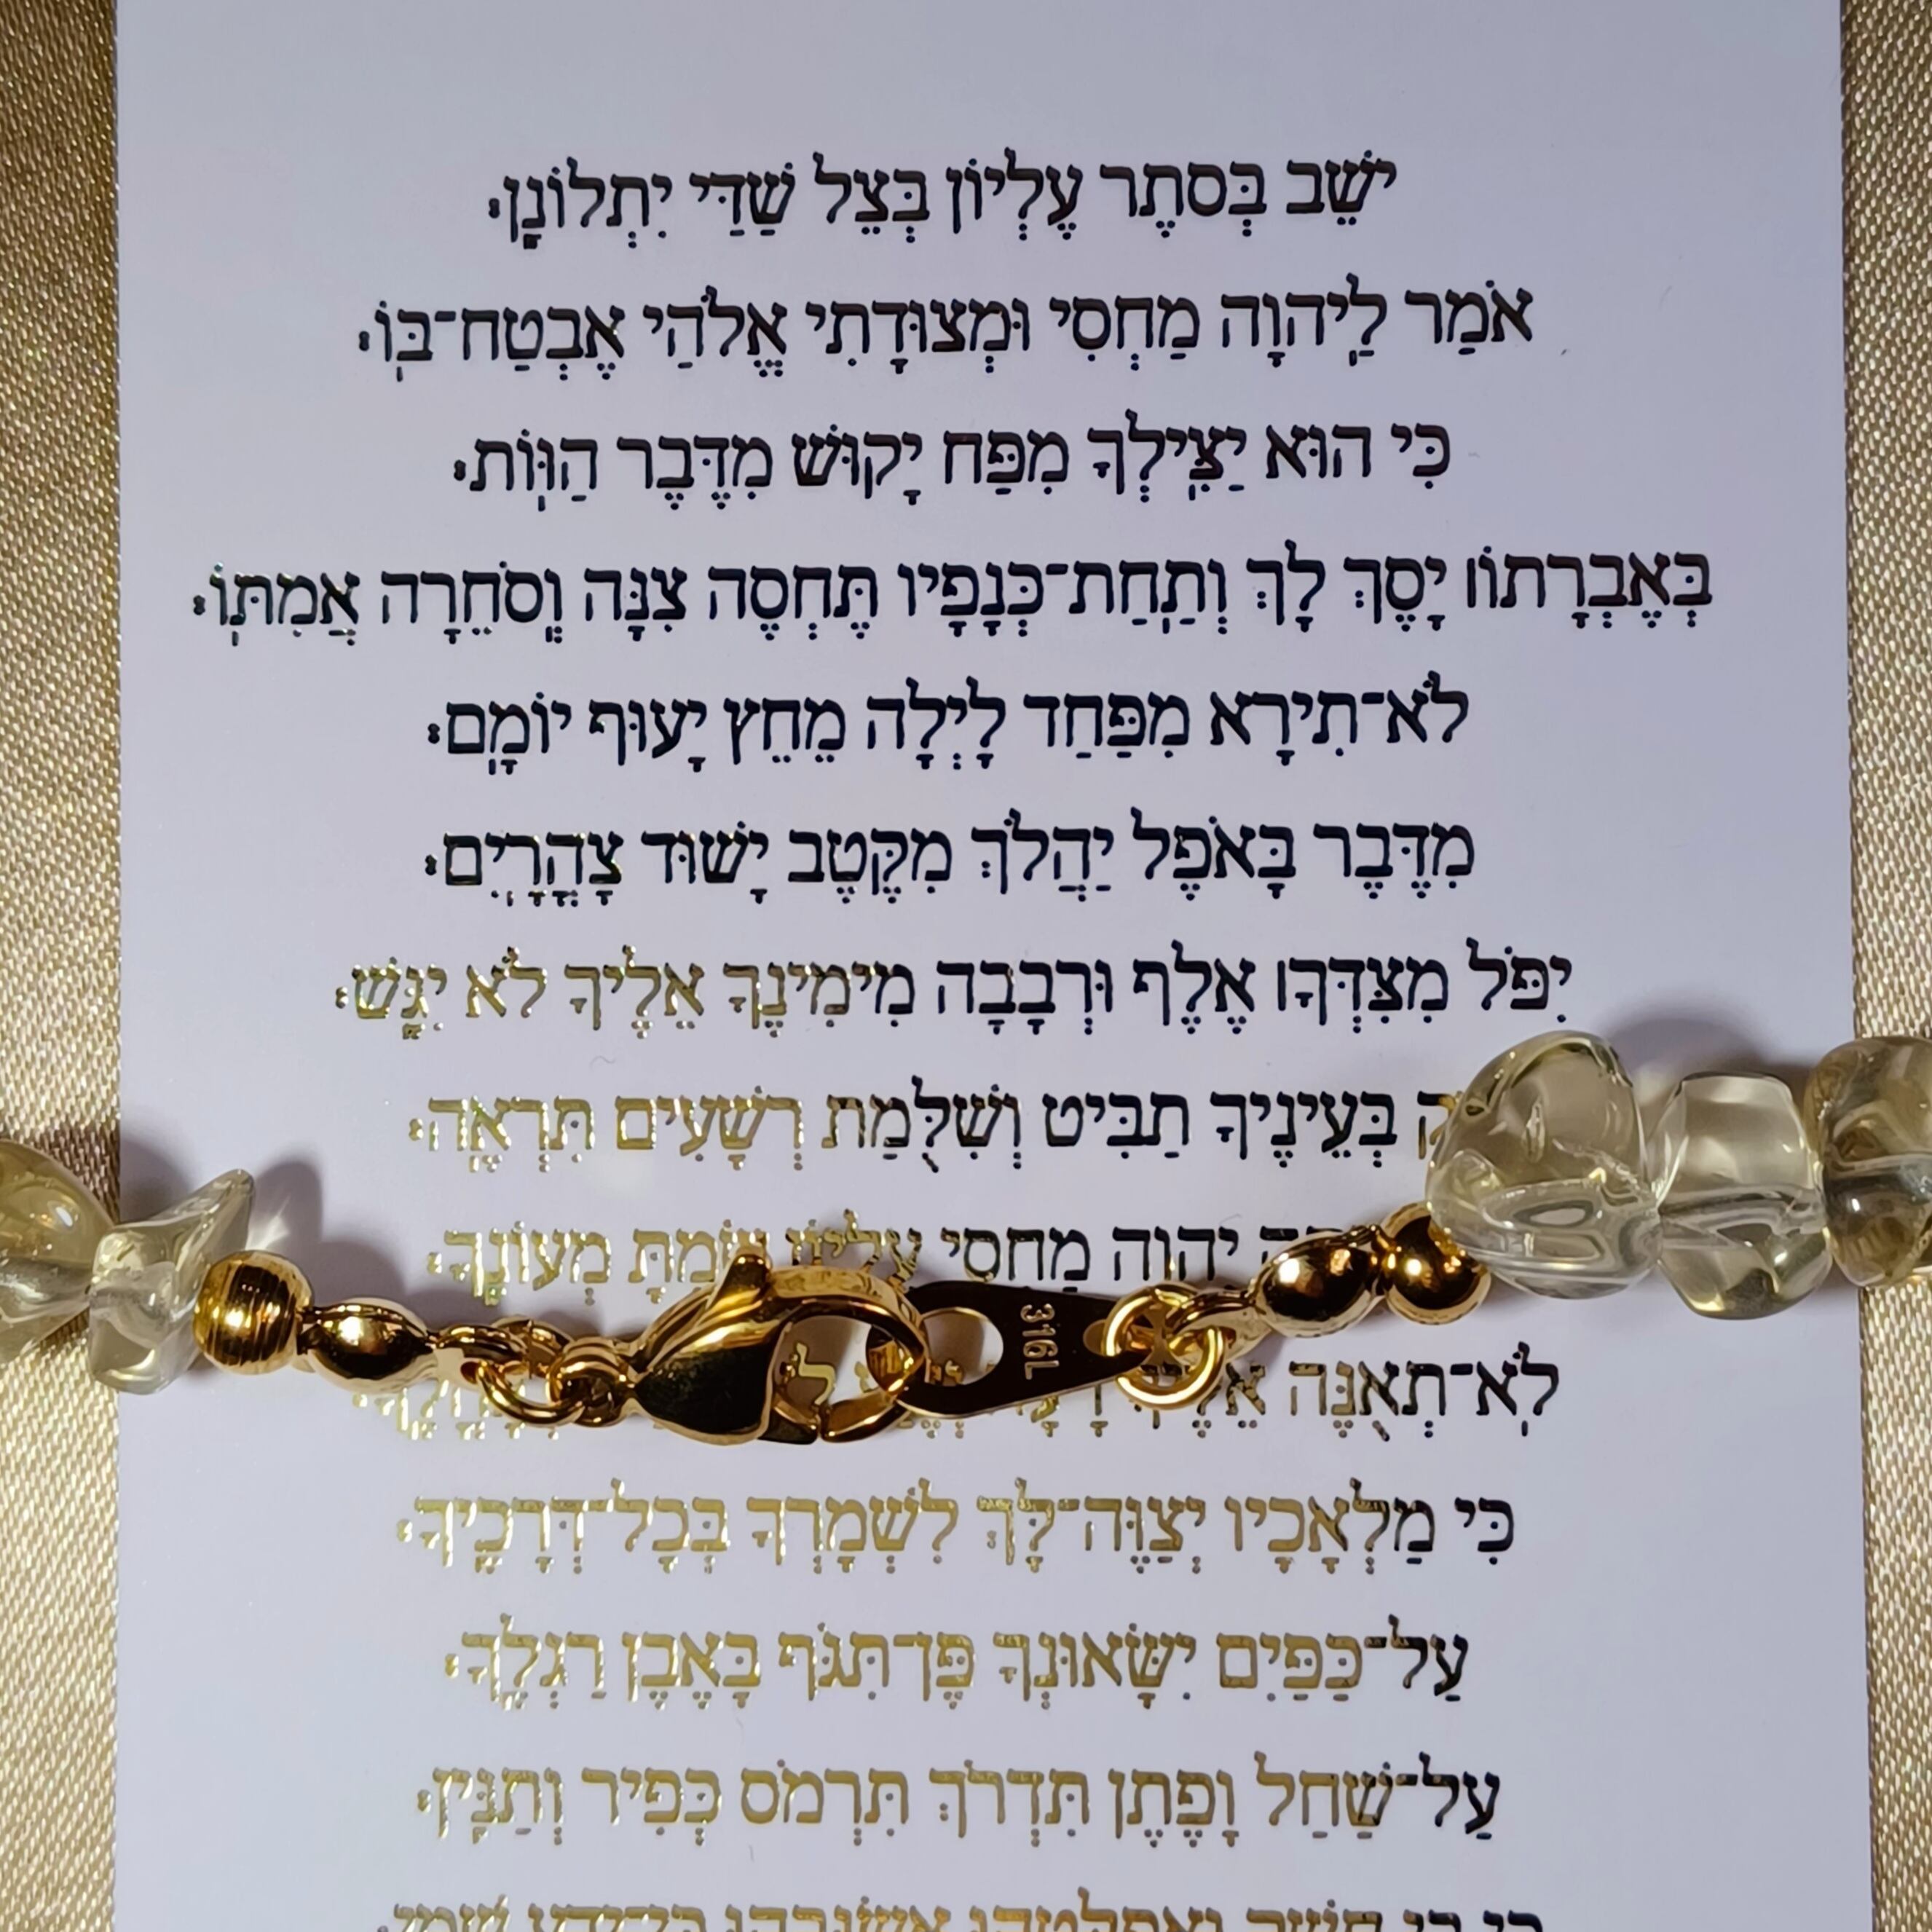 יֹשֵׁב בְּסֵתֶר עֶלְיוֹן בְּצֵל שַׁדַּי יִתְלוֹנָן׃
אֹמַר לַיהוָה מַחְסִי וּמְצוּדָתִי אֱלֹהַי אֶבְטַח־בּוֹ׃
כִּי הוּא יַצִּילְךָ מִפַּח יָקוּשׁ מִדֶּבֶר הַוּוֹת׃
בְּאֶבְרָתוֹ׀ יָסֶךְ לָךְ וְתַחַת־כְּנָפָיו תֶּחְסֶה צִנָּה וְסֹחֵרָה אֲמִתּוֹ׃
לֹא־תִירָא מִפַּחַד לָיְלָה מֵחֵץ יָעוּף יוֹמָם׃
מִדֶּבֶר בָּאֹפֶל יַהֲלֹךְ מִקֶּטֶב יָשׁוּד צָהֳרָיִם׃
יִפֹּל מִצִּדְּךָ׀ אֶלֶף וּרְבָבָה מִימִינֶךָ אֵלֶיךָ לֹא יִגָּשׁ׃
בְּעֵינֶיךָ תַבִּיט וְשִׁלֻּמַת רְשָׁעִים תִּרְאֶה׃
יְהוָה מַחְסִי עֶלְיוֹן שַׂמְתָּ מְעוֹנֶךָ׃
316L
לֹא־תְאֻנֶּה
כִּי מַלְאָכָיו יְצַוֶּה־לָּךְ לִשְׁמָרְךָ בְּכָל־דְּרָכֶיךָ׃
עַל־כַּפַּיִם יִשָּׂאוּנְךָ פֶּן־תִּגֹּף בָּאֶבֶן רַגְלֶךָ׃
עַל־שַׁחַל וָפֶתֶן תִּדְרֹךְ תִּרְמֹס כְּפִיר וְתַנִּין׃
כִּי בִי חָשַׁק וַאֲפַלְּטֵהוּ אֲשַׂגְּבֵהוּ כִּי־יָדַע שְׁמִי׃